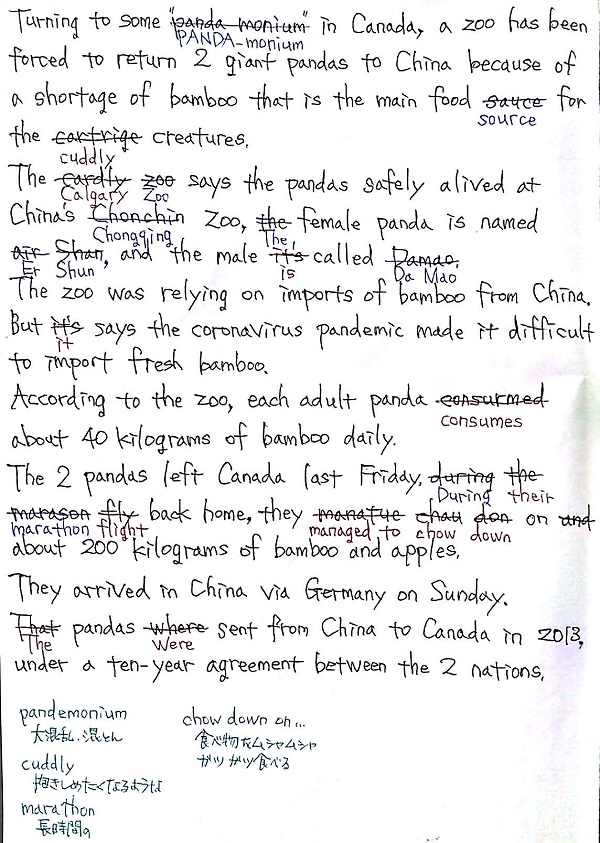 Turning to some "panda monium" in Canada, a zoo has been
PANDA-monium
forced to return 2 giant pandas to China because of
a shortage of bamboo that is the main food sauce for
source
the cartrige creatures.
cuddly
The cardly zoo says the pandas safely alived at
Calgary Zoo
China's Chonchin Zoo, the female panda is named
Chongqing The
air Shan, and the male it's called Damao.
Er Shun is Da Mao
The zoo was relying on imports of bamboo from China.
But it's says the coronavirus pandemic made it difficult
it
to import fresh bamboo.
According to the zoo, each adult panda consurmed
consumes
about 40 kilograms of bamboo daily.
The 2 pandas left Canada last Friday, during the
During their
marason fly back home, they manafue chau don on and
marathon flight managed to chow down
about 200 kilograms of bamboo and apples.
They arrived in China via Germany on Sunday.
That pandas where sent from China to Canada in 2013,
The were
under a ten-year agreement between the 2 nations.
pandemonium
大混乱.混とん
cuddly
抱きしめたくなるような
marathon
長時間の
chow down on...
食べ物をムシャムシャ
ガツガツ食べる